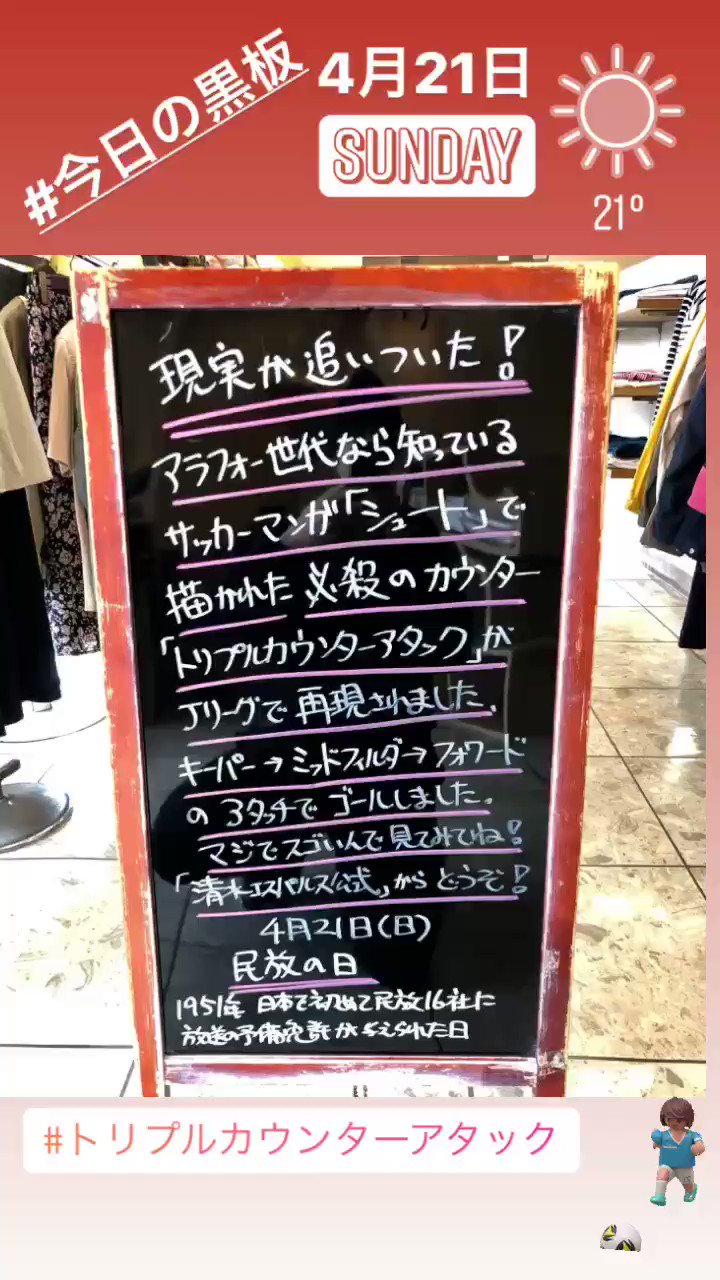 #今日の黒板
4月21日
SUNDAY
21°
現実が追いついた!
アラフォー世代なら知っている
サッカーマンガ「シュート」で
描かれた必殺のカウンター
「トリプルカウンターアタック」が
Jリーグで再現されました。
キーパー→ミッドフィルダ→フォワード
の3タッチでゴールしました。
マジでスゴいんで見てみてね!
「清水エスパルス公式」からどうぞ!
4月21日(日)
民放の日
1951年 日本で初めて民放16社に
放送の予備免許が与えられた日
#トリプルカウンターアタック